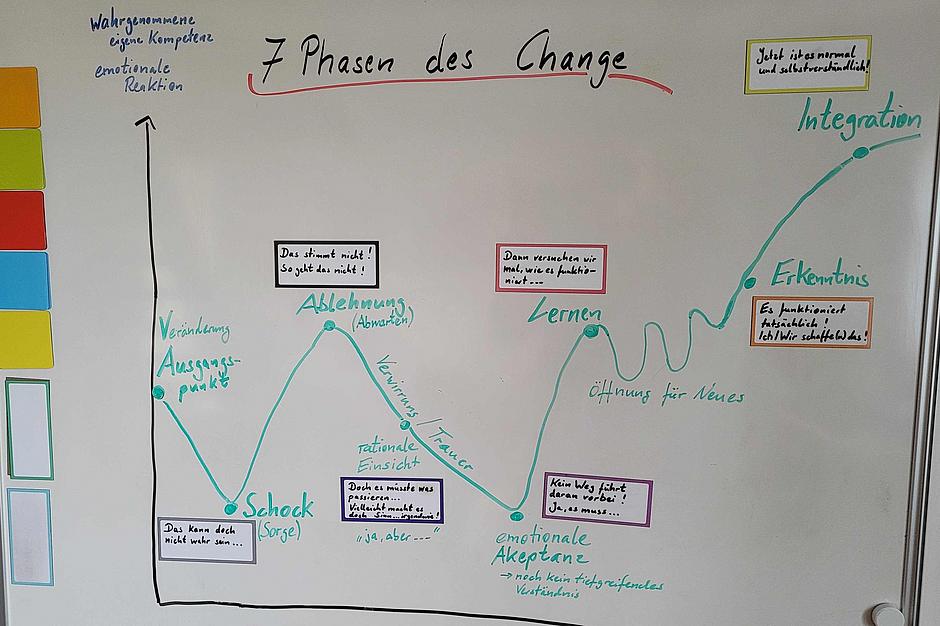 Wahrgenommene
eigene Kompetenz
emotionale
Reaktion
7 Phasen des Change
Jetzt ist es normal
und selbstverständlich!
Integration
Das stimmt nicht!
So geht das nicht!
Ablehnung
(Abwarten)
Dann versuchen wir
mal, wie es funktio-
niert ...
Lernen
Erkenntnis
Es funktioniert
tatsächlich!
Ich/Wir schaffe(n) das!
Veränderung
Ausgangs-
punkt
Öffnung für Neues
Verwirrung / Trauer
rationale
Einsicht
Doch es müsste was
passieren...
Vielleicht macht es
doch Sinn...irgendwie!
"ja, aber ---"
Kein Weg führt
daran vorbei!
Ja, es muss...
Schock
(Sorge)
Das kann doch
nicht wahr sein...
emotionale
Akeptanz
→ noch kein tiefgreifendes
Verständnis